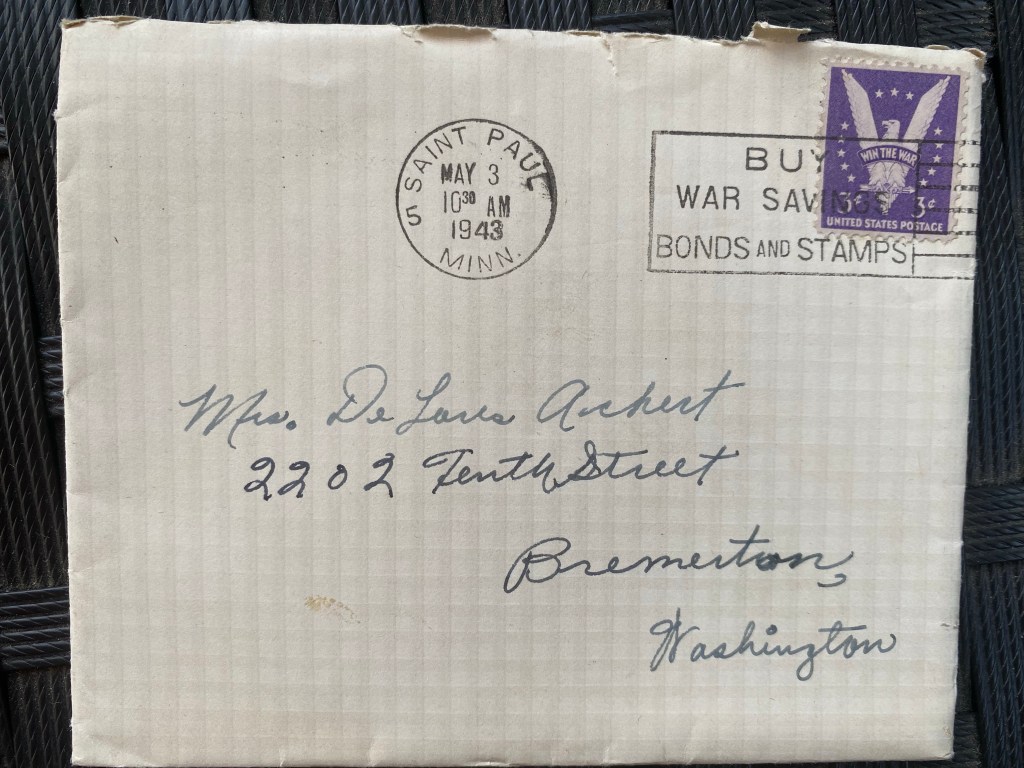 SAINT PAUL
MAY 3
10³⁰ AM
1943
5 MINN.
BUY
WAR SAVINGS
BONDS AND STAMPS
WIN THE WAR
3¢ 3¢
UNITED STATES POSTAGE
Mrs. De Lores Ackert
2202 Tenth Street
Bremerton,
Washington